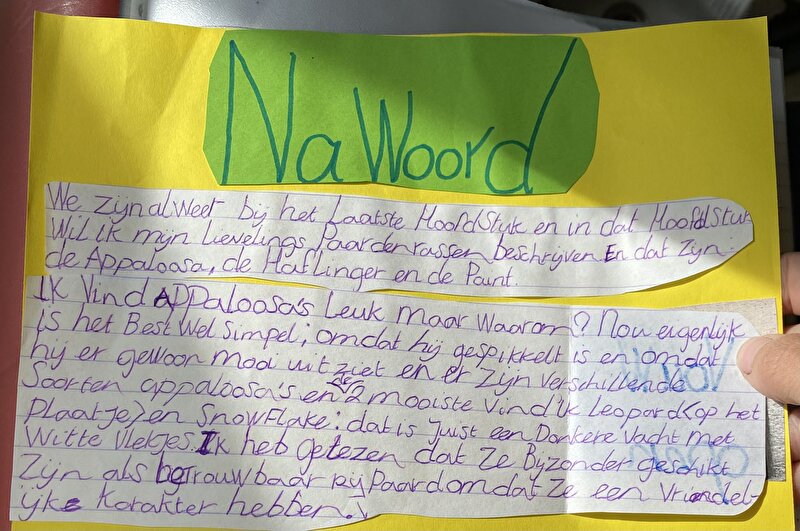 Na Woord
We zijn alweer bij het Laatste Hoofdstyk en in dat Hoofdstuk
Wil ik mijn Lievelings Paardenrassen beschrijven En dat zijn:
de Appaloosa, de Haflinger en de Paint.
Ik Vind Appaloosa's Leuk Maar Waarom? Nou eigenlijk
is het Best Wel Simpel; omdat hij gespikkelt is en omdat
hij er gewoon mooi uit ziet en er zijn verschillende
Soorten appaloosa's en de 2 mooiste vind ik Leopard (op het
plaatje) en Snowflake: dat is Juist een Donkere Vacht met
Witte Vlekjes Ik heb gelezen dat ze Bijzonder geschikt
Zijn als betrouwbaar rij Paard omdat ze een Vriendel-
ijke Karakter hebben.